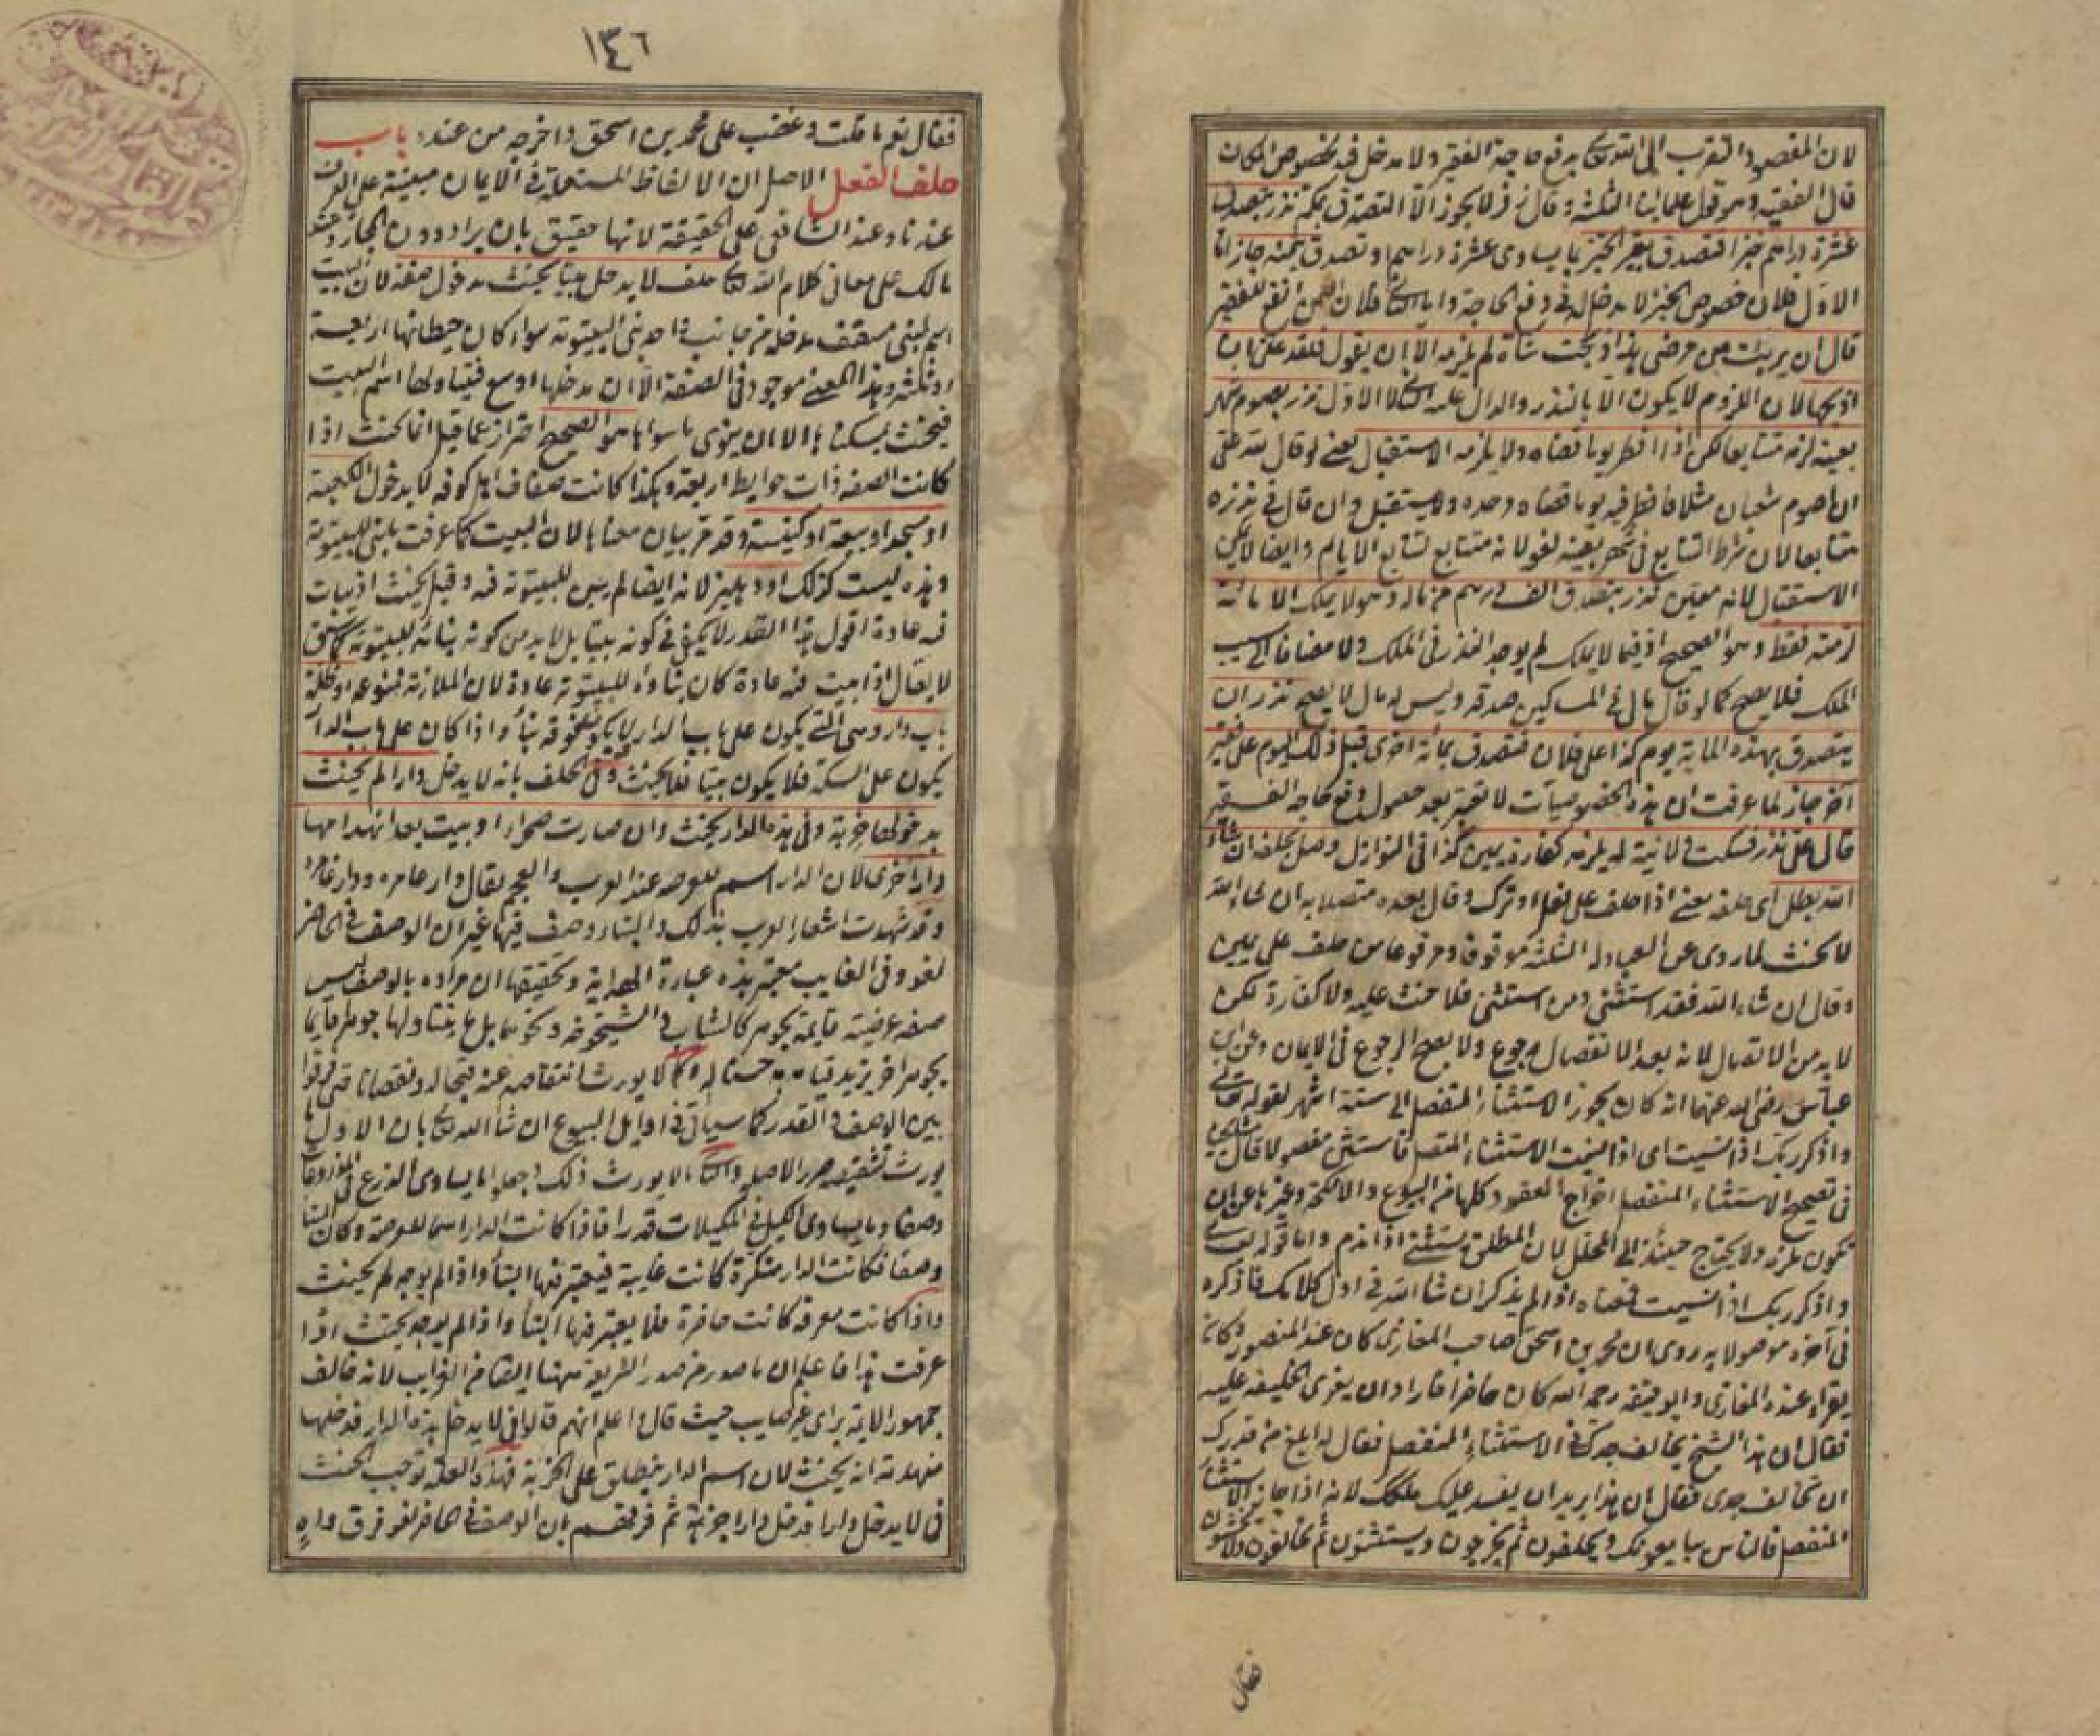 لان المقصود التقرب الى الله تعالى بدفع حاجة الفقير ولا مدخل فيه لخصوص المكان
قال الفقيه وهو قول علمائنا الثلثة وقال زفر لا يجوز الا التصدق بمكة نذر بتصدق
عشرة دراهم خبزا فتصدق بغير الخبز ما يساوى عشرة دراهم او تصدق بثمنه جاز اما
الاول فلان خصوص الخبز لا مدخل له فى دفع الحاجة واما الثانى فلان الثمن انفع للفقير
قال ان برئت من مرضى هذا ذبحت شاة لم يلزمه الا ان يقول فلله على ان
اذبحها لان اللزوم لا يكون الا بالنذر والدال عليه الثانى لا الاول نذر بصوم شهر
بعينه لزمه متتابعا لكن اذا افطر يوما قضاه ولا يلزمه الاستقبال يعنى لو قال لله على
ان اصوم شعبان مثلا فافطر فيه يوما قضاه وحده ولا يستقبل وان قال فى نذره
متتابعا لان شرط التتابع فى شهر بعينه لغو لانه متتابع لتتابع الايام وايضا لا يمكن
الاستقبال لانه معين نذر بتصدق الف درهم من ماله وهو لا يملك الا مائة
لزمته فقط وهو الصحيح اذ فيما لا يملك لم يوجد النذر فى الملك ولا مضافا الى سبب
الملك فلا يصح كما لو قال مالى فى المساكين صدقة وليس له مال لا يصح نذر ان
يتصدق بهذه المائة يوم كذا على فلان فتصدق بمائة اخرى قبل ذلك اليوم على فقير
آخر جاز لما عرفت ان هذه الخصوصيات لا تعتبر بعد حصول دفع حاجة الفقير
قال على نذر فسكت ولا نية له يلزمه كفارة يمين كذا فى النوازل وصل بحلفه ان شاء
الله بطل اى حلفه يعنى اذا حلف على فعل او ترك وقال بعده متصلا به ان شاء الله
لا يحنث لما روى عن العبادلة الثلثة موقوفا ومرفوعا من حلف على يمين
وقال ان شاء الله فقد استثنى ومن استثنى فلا حنث عليه ولا كفارة لكن
لا بد من الاتصال لانه بعد الانفصال رجوع ولا يصح الرجوع فى الايمان وعن ابن
عباس رضى الله عنهما انه كان يجوز الاستثناء المنفصل الى ستة اشهر لقوله تعالى
واذكر ربك اذا نسيت اى اذا نسيت الاستثناء المتصل فاستثن مفصولا قال مشايخنا
فى تصحيح الاستثناء المنفصل اخراج العقود كلها من البيوع والانكحة وغيرها عن ان
تكون ملزمة ولا يحتاج حينئذ الى المحلل لان المطلق يستثنى اذا ندم واما قوله تعالى
واذكر ربك اذا نسيت فمعناه اذا لم يذكر ان شا الله فى اول كلامك فاذكره
فى آخره موصولا به روى ان محمد بن اسحق صاحب المغازى كان عند المنصور وكان
يقرأ عنده المغازى وابو حنيفة رحمه الله كان حاضرا فاراد ان يغرى الخليفة عليه
فقال ان هذا الشيخ يخالف جدك فى الاستثناء المنفصل فقال له ابلغ من قدرك
ان تخالف جدى فقال ان هذا يريد ان يفسد عليك ملكك لانه اذا جاز الاستثناء
المنفصل فالناس يبايعونك ويحلفون ثم يخرجون ويستثنون ثم يخالفون ولا يحنثون
فقال
١٣٦
فقال نعم ما قلت وغضب على محمد بن اسحق واخرجه من عنده باب
حلف الفعل الاصل ان الالفاظ المستعملة فى الايمان مبنية على العرف
عندنا وعند الشافعى على الحقيقة لانها حقيق بان يراد دون المجاز وعند
مالك على معانى كلام الله تعالى حلف لا يدخل بيتا يحنث بدخول صفة لان البيت
اسم لمبنى مسقف مدخله من جانب واحد بنى للبيتوتة سواء كان حيطانها اربعة
او ثلثة وهذا المعنى موجود فى الصفة الا ان مدخلها اوسع فيتناولها اسم البيت
فيحنث بسكناها الا ان ينوى ما سواها هو الصحيح احتراز عما قيل انما يحنث اذا
كانت الصفة ذات حوايط اربعة وهكذا كانت صفاف اهل كوفة لا بدخول الكعبة
او مسجد او بيعة او كنيسة وقد مر بيان معناها لان البيت كما عرفت ما بنى للبيتوتة
وهذه ليست كذلك او دهليز لانه ايضا لم يبن للبيتوتة فيه وقيل يحنث اذ يبات
فيه عادة اقول هذا القدر لا يكفى فى كونه بيتا بل لا بد من كونه بنائه للبيتوتة كما سبق
لا يقال اذا بيت فيه عادة كان بناؤه للبيتوتة عادة لان الملازمة ممنوعة او ظلة
باب دار وهى التى يكون على باب الدار لا يكون فوقه بناء واذا كان على باب الدار
يكون على السكة فلا يكون بيتا فلا يحنث وفى الحلف بانه لا يدخل دارا لم يحنث
بدخولها خربة وفى هذه الدار يحنث وان صارت صحراء او بنيت بعد انهدامها
دار اخرى لان الدار اسم للعرصة عند العرب والعجم يقال دار عامرة ودار غامرة
وقد شهدت اشعار العرب بذلك والبناء وصف فيها غير ان الوصف فى الحاضر
لغو وفى الغايب معتبر هذه عبارة الهداية وتحقيقها ان مراده بالوصف ليس
صفة عرضية قايمة بجوهر كالشباب والشيخوخة ونحوهما بل ما يتناولها جوهر قايما
بجوهر آخر يزيد قيامه به حسنا له وكمالا يورث انتقاصه عنه قبحا له ونقصانا قد فرقوا
بين الوصف والقدر كما سياتى فى اوايل البيوع ان شاء الله تعالى بان الاول ما
يورث تشقيصه ضرر الاصل والثانى ما لا يورث ذلك فجعلوا ما يساوى الذرع فى المذروعات
وصفا وما يساوى الكيل فى المكيلات قدرا فاذا كانت الدار اسما للعرصة وكان البناء
وصفا فكانت الدار منكرة كانت غايبة فيعتبر فيها البناء واذا لم يوجد لم يحنث
واذا كانت معرفة كانت حاضرة فلا يعتبر فيها البناء واذا لم يوجد يحنث اذا
عرفت هذا فاعلم ان ما صدر من صدر الشريعة ههنا ايضا من الغرايب لانه خالف
جمهور الائمة براى غير صايب حيث قال واعلم انهم قالوا فى لا يدخل هذه الدار فدخلها
منهدمة انه يحنث لان اسم الدار يطلق على الخربة فهذه العلة توجب الحنث
فى لا يدخل دارا فدخل دارا خربة ثم فرقهم بان الوصف فى الحاضر لغو فرق واه